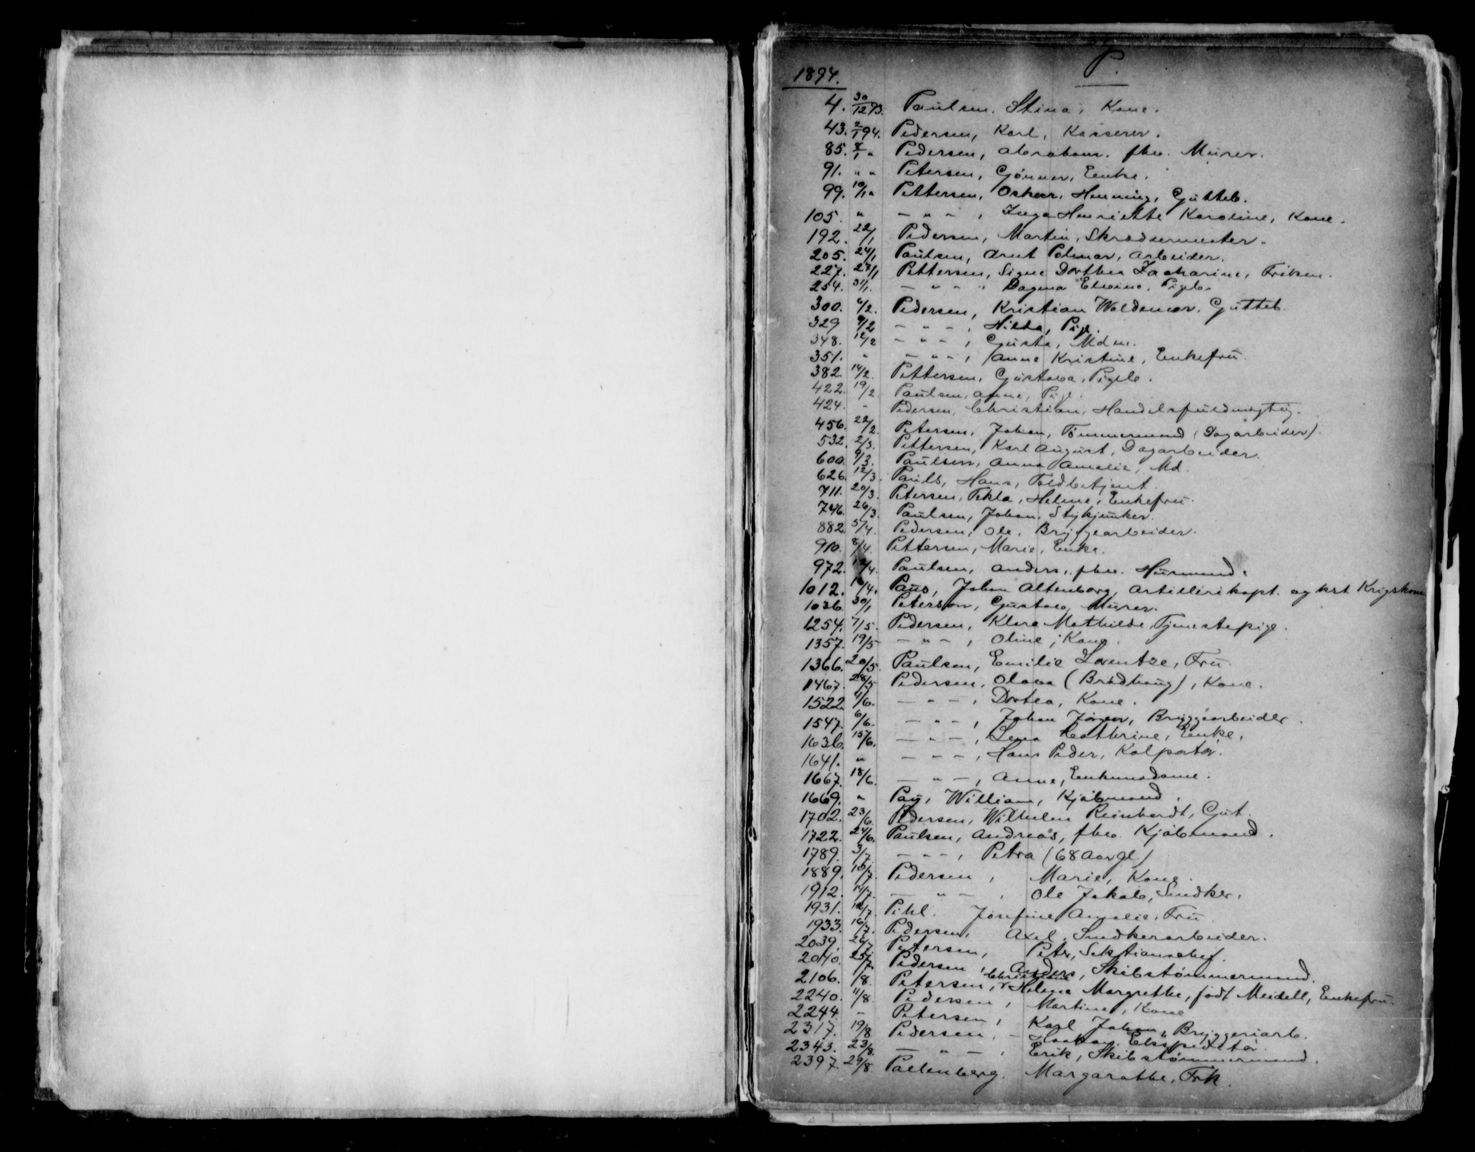 P.
1894.
4. 30/12 93. Paulsen, Stina, Kone.
43. 2/1 94. Pedersen, Karl, Kasserer.
85. 8/1 " Pedersen, Abraham, fhv. Murer.
91. " " Petersen, Gunner, Enke.
99. 10/1 " Pettersen, Oskar Henning, Gutteb.
105. " — " — , Inga Henriette Karoline, Kone.
192. 22/1 Pedersen, Martin, Skrædermester.
205. 24/1 Paulsen, Arnt Petmar, Arbeider.
227. 27/1 Pettersen, Signe Dorthea Zacharine, Frøken.
254. 31/1. — " — " Dagma Elvine, Pigeb.
300. 6/2. Pedersen, Kristian Waldemar, Gutteb.
329 9/2 — " — , Hilda, Pige.
348. 12/2 — " — , Gusta, Mdm.
351. " — " — , Anne Kristine, Enkefru.
382 14/2. Pettersen, Gustava, Pigeb.
422. 19/2 Paulsen, Anne, Pige.
424. " Pedersen, Christian, Handelsfuldmægtig.
456. 22/2. Petersen, Johan, Tømmermand (Dagarbeider).
532. 2/3. Pettersen, Karl August, Dagarbeider.
600. 9/3. Paulsen, Anna Amalie, Md.
626. 12/3. Pauls, Hans, Toldbetjent.
711. 20/3. Petersen, Tekla, Helene, Enkefru.
746. 26/3 Paulsen, Johan, Stykjunker.
882. 5/4. Pedersen, Ole, Bryggearbeider.
910. 8/4. Pettersen, Marie, Enke.
972. /4. Paulsen, Anders, fhv. Husmand.
1012. /4. Paus, Johan Altenborg, Artillerikapt. og krst Krigskom
1036. 30/1 Peterson, Gustav, Murer.
1254. 7/5. Pedersen, Klara Mathilde, Tjenestepige.
1357. 19/5 — " — , Oline, Kone.
1366. 20/5. Paulsen, Emilie Lorentze, Fru.
1467. 28/5 Pedersen, Olava (Bradhaug), Kone.
1522 /6. — " — , Dortea, Kone.
1547. 6/6. — " — , Johan Jørgen, Bryggearbeider.
1636. 15/6. — " — , Lena Cathrine, Enke.
1641. " — " — , Hans Peder, Kolportør.
1667. 18/6. — " — , Anne, Enkemadame.
1669. " Pay, William, Kjøbmand.
1702. 23/6. Pedersen, Wilhelm Reinhardt, Gut.
1722. 24/6. Paulsen, Andreas, fhv. Kjøbmand.
1789. 3/7. — " — , Petra (68 Aar gl.)
1889. /7. Pedersen, Marie, Kone.
1912. 14/7. — " — , Ole Jakob, Snedker.
1931. /7 Pihl. Josefine Amalie, Fru.
1933. 16/7. Pedersen, Axel, Snedkerarbeider.
2039. 26/7. Petersen, Peter, Sektionschef.
2040. 25/7. Pedersen, Anders, Skibstømmermand.
2106. /8. Petersen, Christine Helene Margrethe, født Meidell, Enkefru.
2240. 11/8. Pedersen, Martine, Kone
2244. — Petersen, Karl Johan, Bryggeriarb.
2317. 19/8 Pedersen, — Haakon, Ekspeditør.
2343. 23/8. — " — , Erik, Skibstømmermand.
2397. 29/8 Paltenberg. Margarethe, Frk.